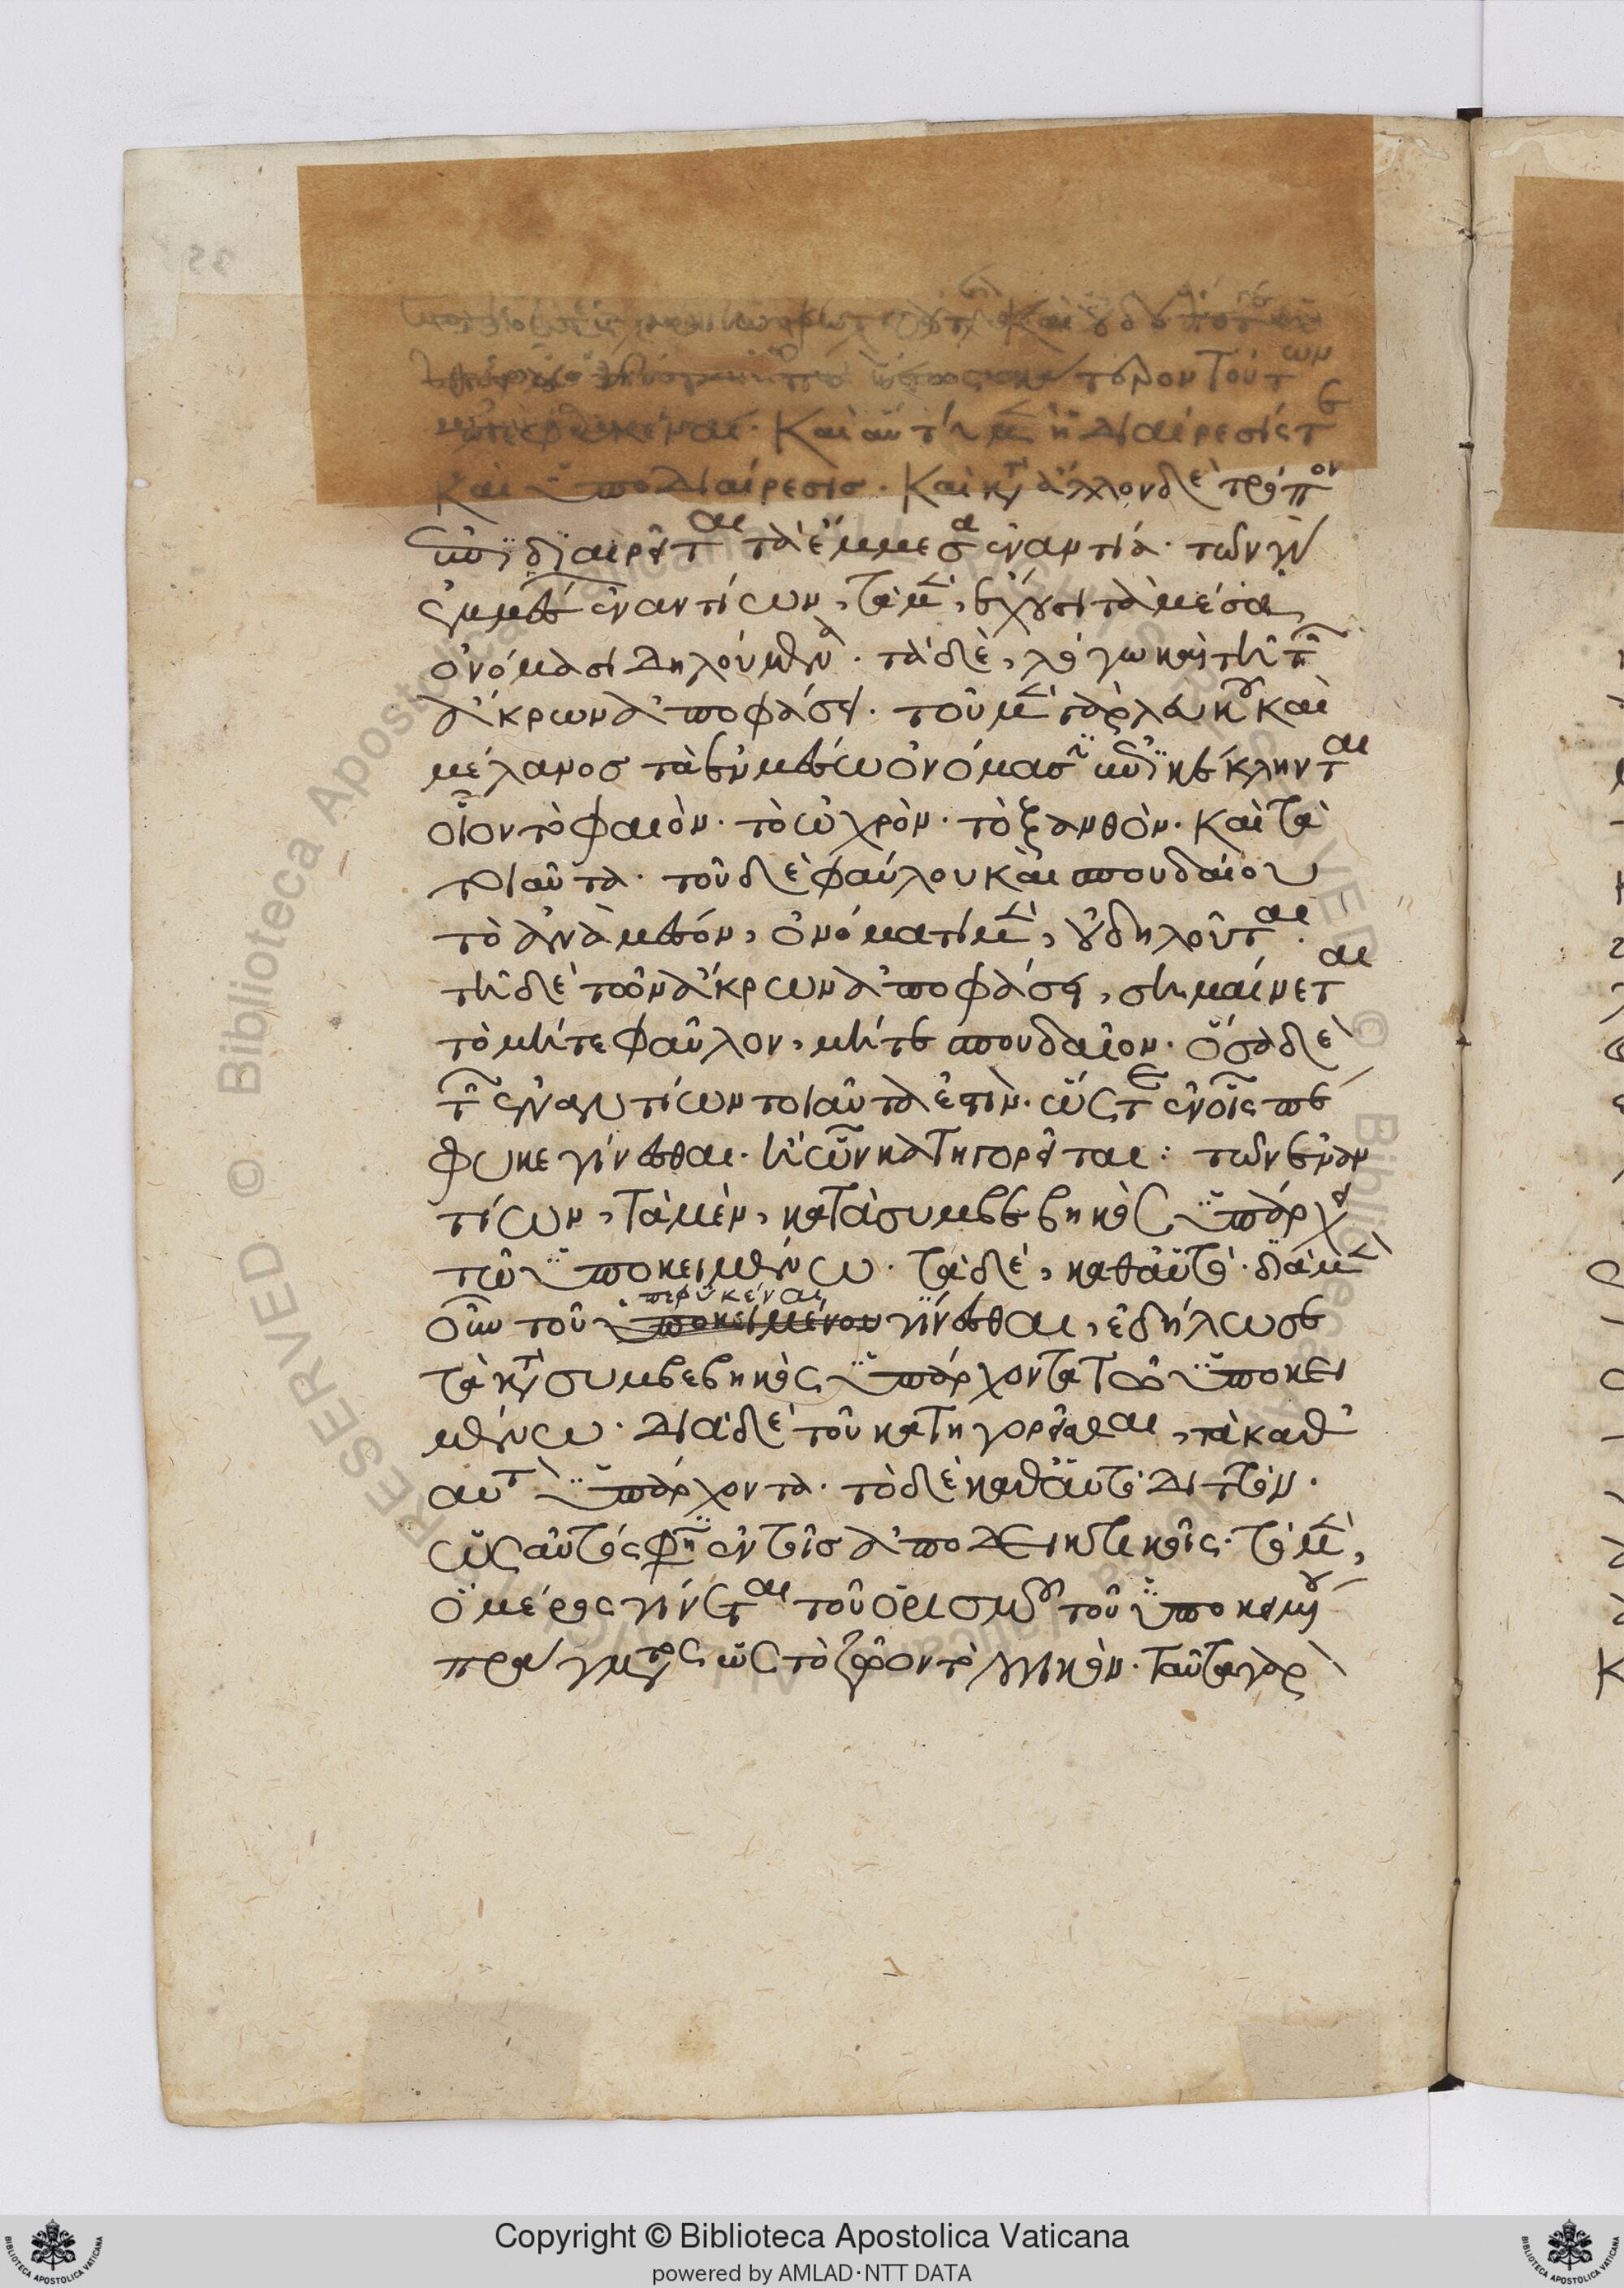 καὶ οὐδέποτε
τούτων
Καὶ αὕτη μὲν ἡ διαίρεσίς τε
καὶ ὑποδιαίρεσις. Καὶ κατ' ἄλλον δὲ τρόπον
ὑποδιαιρεῖται τὰ ἔμμεσα ἐναντία. τῶν γὰρ
ἐμμέσων ἐναντίων, τὰ μὲν, ἔχουσι τὰ μέσα,
ὀνόμασι δηλούμενα. τὰ δὲ, λόγω καὶ τῆ τῶν
ἄκρων ἀποφάσει. τοῦ μὲν γὰρ λευκοῦ καὶ
μέλανος τὰ ἐν μέσω ὀνόμασιν κέκληνται
οἷον τὸ φαιὸν. τὸ ὠχρὸν. τὸ ξανθὸν. καὶ τὰ
τοιαῦτα. τοῦ δὲ φαύλου καὶ σπουδαίου
τὸ ἀνὰ μέσον, ὀνόματι μὲν, οὐ δηλοῦται.
τῆ δὲ τῶν ἄκρων ἀποφάσει, σημαίνεται
τὸ μήτε φαῦλον, μήτε σπουδαῖον. ὅσα δὲ
τῶν ἐναντίων τοιαῦτά ἐστιν. ὥστε ἐν οἷς πέ
φυκε γίνεσθαι. ἢ ὧν κατηγορεῖται: τῶν ἐναν
τίων, τὰ μὲν, κατὰ συμβεβηκὸς ὑπάρχει
τῶ ὑποκειμένω. τὰ δὲ, καθ' αὑτό. διὰ μὲν
οὖν τοῦ ὑποκειμένου γίνεσθαι, ἐδήλωσε
πεφυκέναι
τὰ κατὰ συμβεβηκὸς ὑπάρχοντα τῶ ὑποκει
μένω. διὰ δὲ τοῦ κατηγορεῖσθαι, τὰ καθ'
αυτὸ ὑπάρχοντα. τὸ δὲ καθ' αὑτὸ διττόν.
ὡς αὐτός φησιν ἐν τοῖς ἀποδεικτικοῖς. τὸ μὲν,
ὃ μέρος γίνεται τοῦ ὁρισμοῦ τοῦ ὑποκειμένου
πράγματος ὡς τὸ ζῶον τὸ λογικόν. ταῦτα γὰρ
© Biblioteca Apostolica Vaticana
Copyright © Biblioteca Apostolica Vaticana
powered by AMLAD·NTT DATA